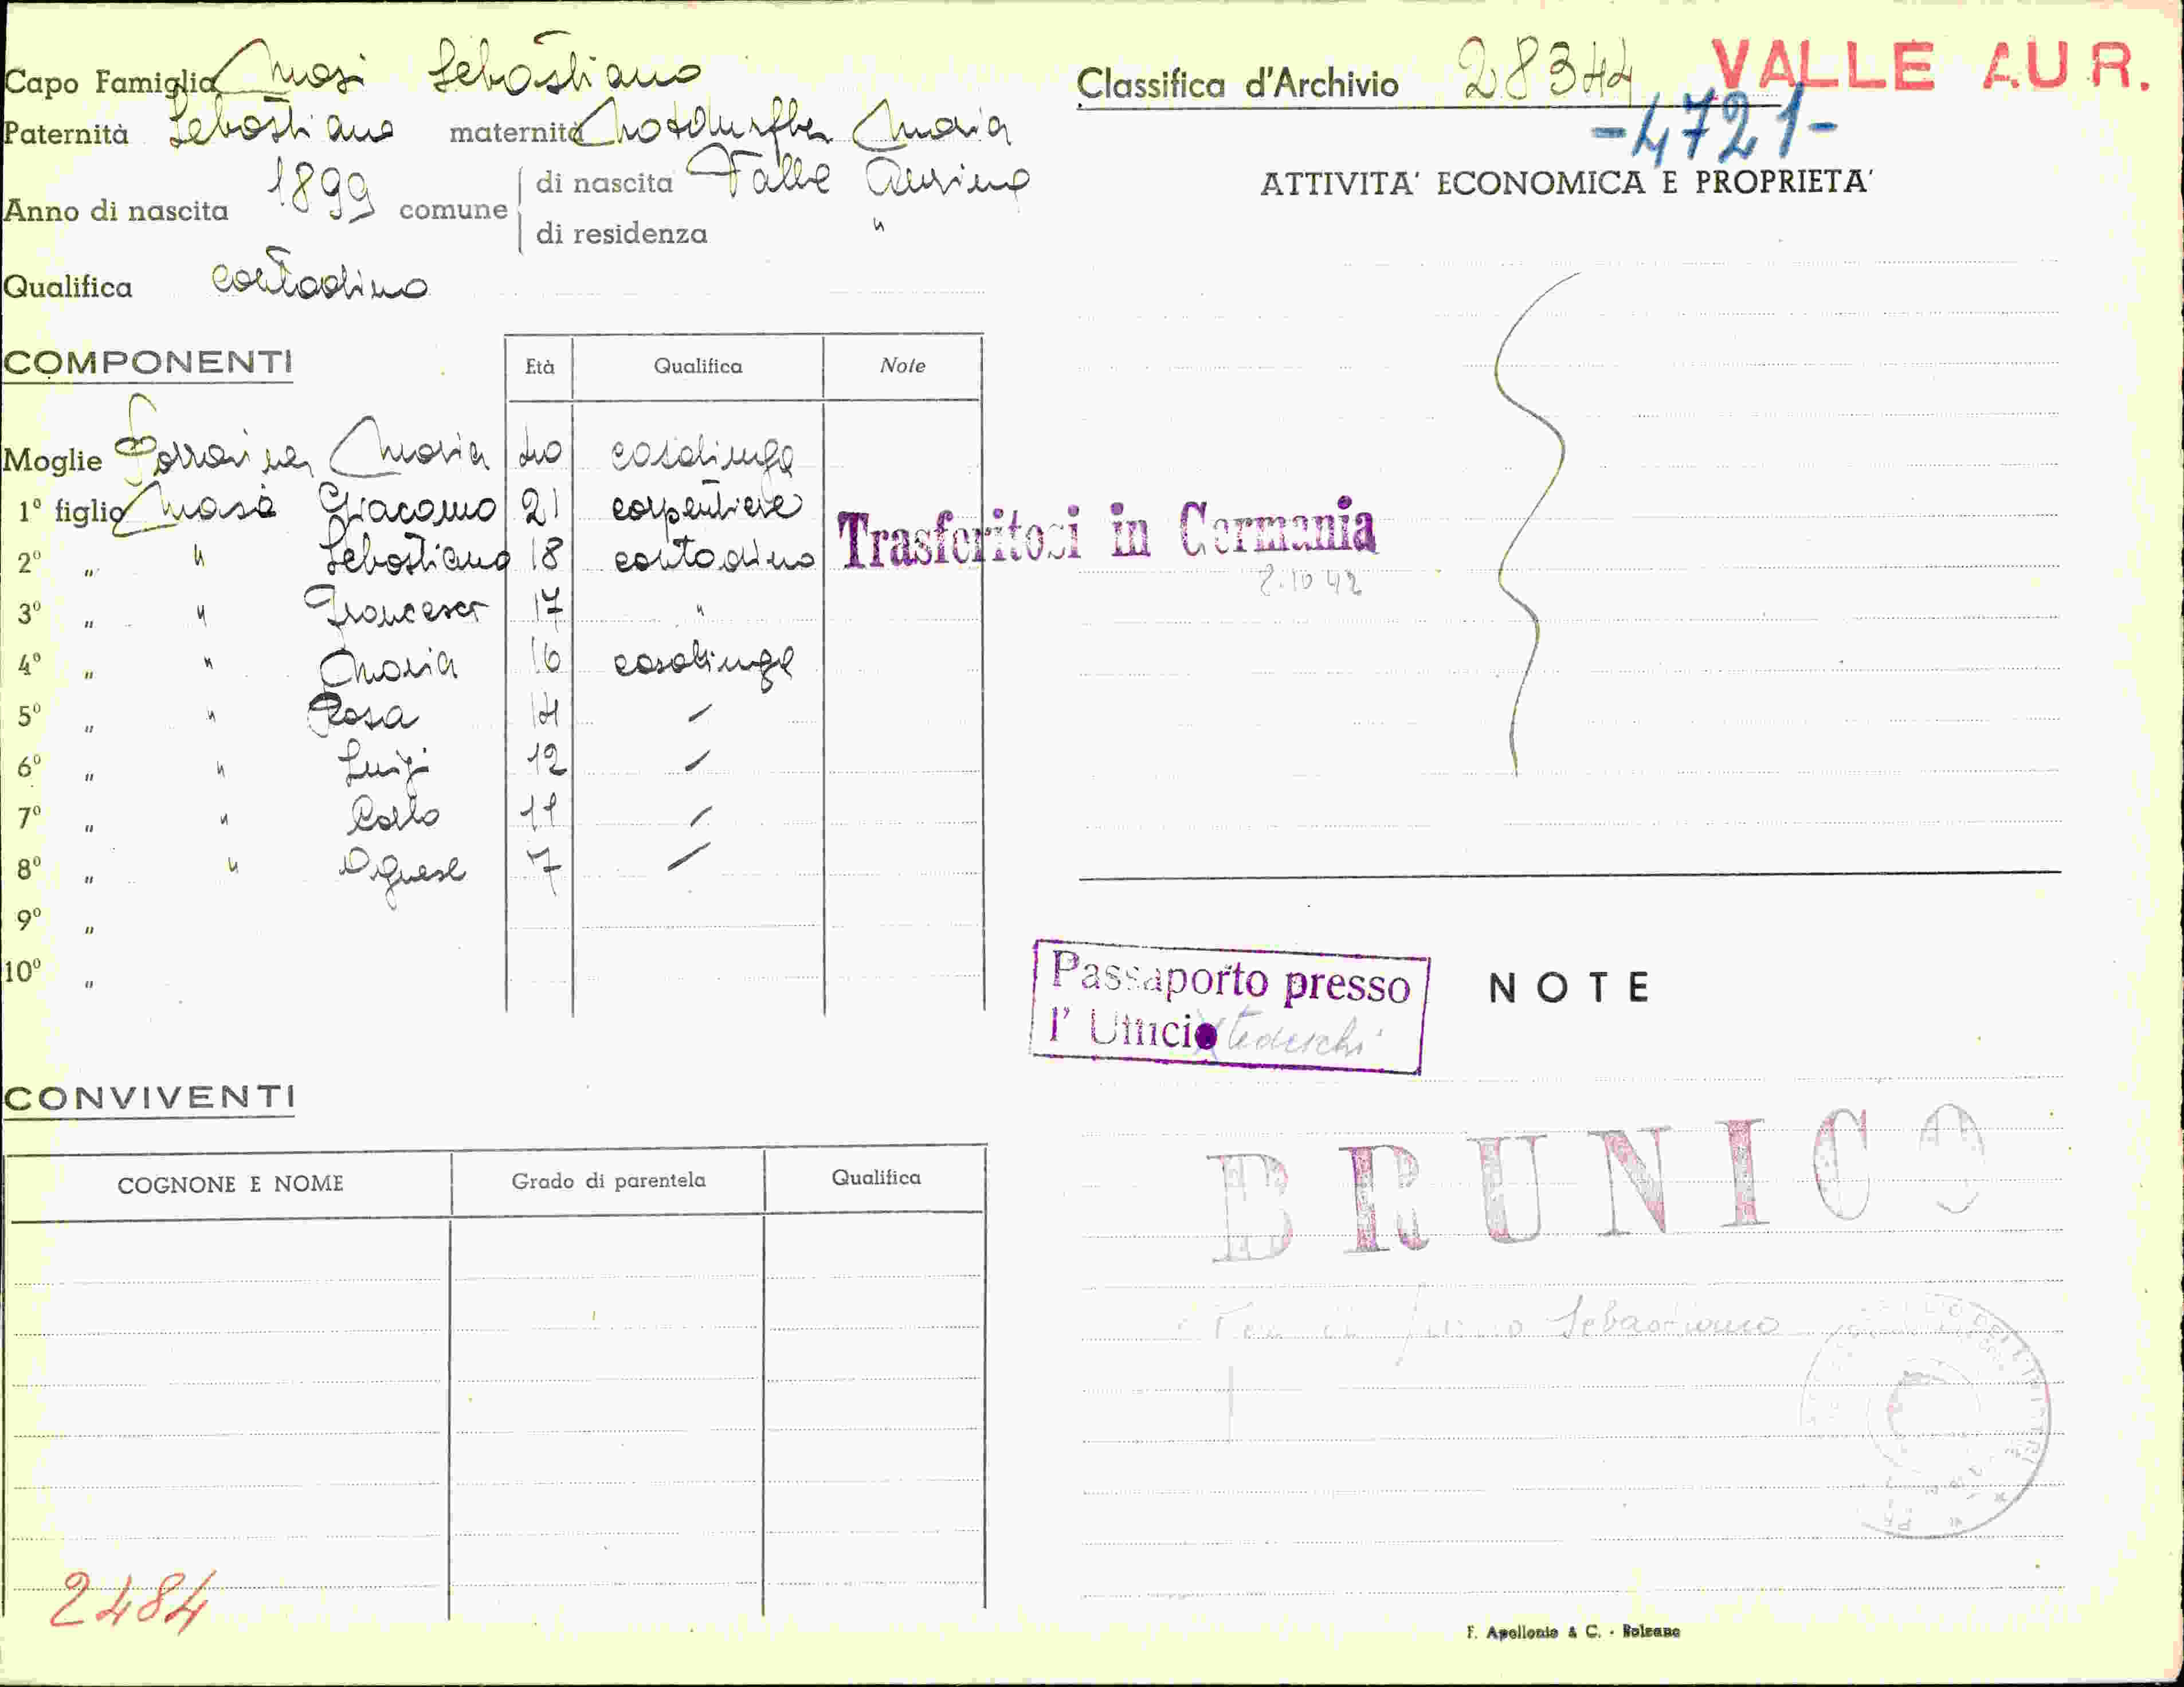 Capo Famiglia Masi Sebastiano
Paternità Sebastiano maternità Maria
Anno di nascita 1899 comune di nascita Valle Aurina
di residenza "
Qualifica contadino
COMPONENTI Età Qualifica Note
Moglie Maria 40 casalinga
1° figlio Masi Giacomo 21 carpentiere
2° " " Sebastiano 18 contadino Trasferitosi in Germania
8.10 42
3° " " Francesco 17 "
4° " " Maria 16 casalinga
5° " " Rosa 14 /
6° " " Luigi 12 /
7° " " Carlo 11 /
8° " " Agnese 7 /
9° "
10° "
CONVIVENTI
COGNONE E NOME Grado di parentela Qualifica
2484
Classifica d'Archivio 28344 VALLE AUR.
-4721-
ATTIVITA' ECONOMICA E PROPRIETA'
Passaporto presso
l' Ufficio tedeschi
NOTE
BRUNICO
Sebastiano
F. Apollonio & C. - Bolzano